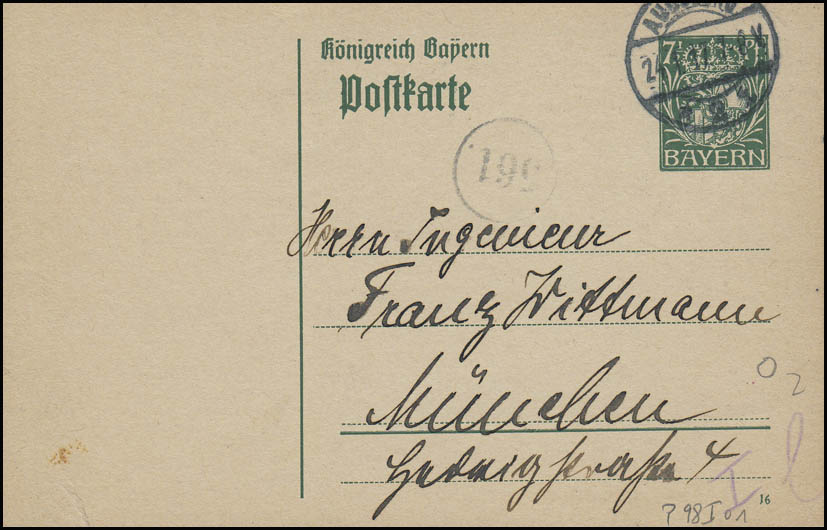 Königreich Bayern
Postkarte
7½
BAYERN
Herrn Ingenieur
Franz Wittmann
München
Hedwigstraße 4
O 2
I
16
P 98 I 01